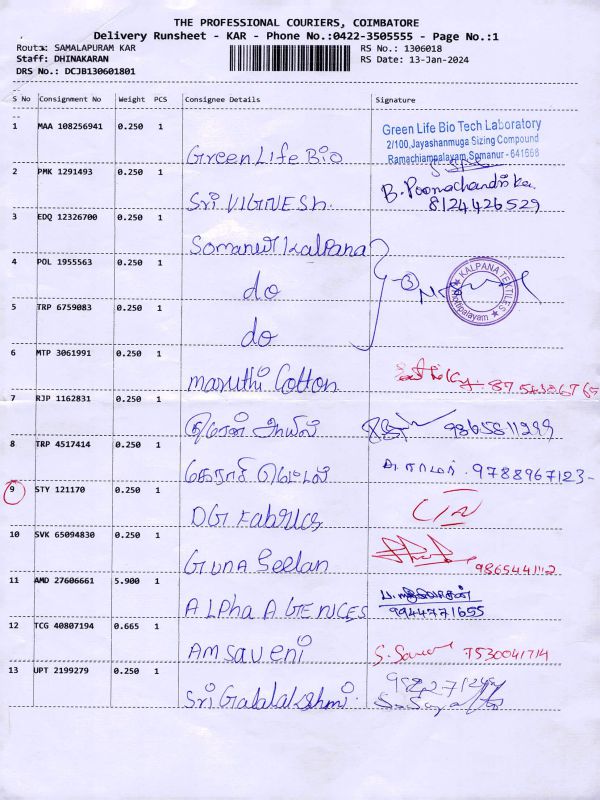 THE PROFESSIONAL COURIERS, COIMBATORE
Delivery Runsheet - KAR - Phone No.:0422-3505555 - Page No.:1
Route: SAMALAPURAM KAR
Staff: DHINAKARAN
DRS No.: DCJB130601801
RS No.: 1306018
RS Date: 13-Jan-2024
S No Consignment No Weight PCS Consignee Details Signature
1 MAA 108256941 0.250 1
Green Life Bio
Green Life Bio Tech Laboratory
2/100,Jayashanmuga Sizing Compound
Ramachiampalayam,Somanur - 641668
2 PMK 1291493 0.250 1
Sri VIGNESH.
8124426529
3 EDQ 12326700 0.250 1
Somanur Kalpana
4 POL 1955563 0.250 1
do
3
KALPANA TEXTILES
5 TRP 6759083 0.250 1
do
6 MTP 3061991 0.250 1
maruthi Cotton
7 RJP 1162831 0.250 1
9865811299
8 TRP 4517414 0.250 1
9788967123-
9 STY 121170 0.250 1
DGI Fabrics
10 SVK 65094830 0.250 1
Guna Seelan
11 AMD 27606661 5.900 1
ALPha AGENCES
9944771655
12 TCG 40807194 0.665 1
Amsaveni
7530041714
13 UPT 2199279 0.250 1